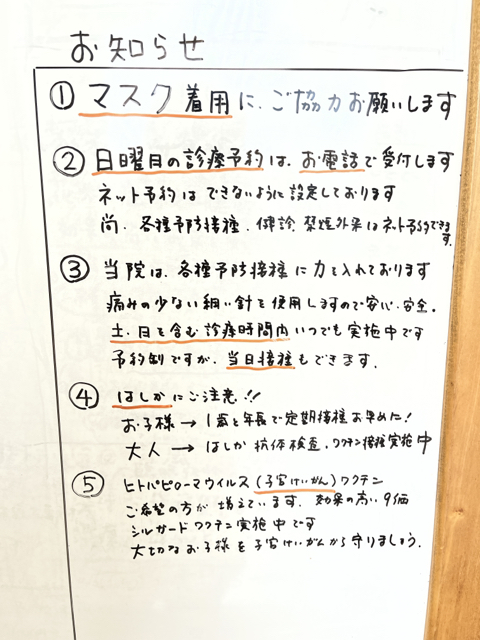 お知らせ
① マスク着用に、ご協力お願いします
② 日曜日の診療予約は、お電話で受付します
ネット予約はできないように設定しております
尚、各種予防接種、健診、禁煙外来はネット予約できます。
③ 当院は、各種予防接種に力を入れております
痛みの少ない細い針を使用しますので安心、安全。
土、日を含む診療時間内いつでも実施中です
予約制ですが、当日接種もできます。
④ はしかにご注意!!
お子様 → 1歳と年長で定期接種お早めに!
大人 → はしか抗体検査、ワクチン接種実施中
⑤ ヒトパピローマウイルス(子宮けいがん)ワクチン
ご希望の方が増えています。効果の高い9価
シルガードワクチン実施中です
大切なお子様を子宮けいがんから守りましょう。